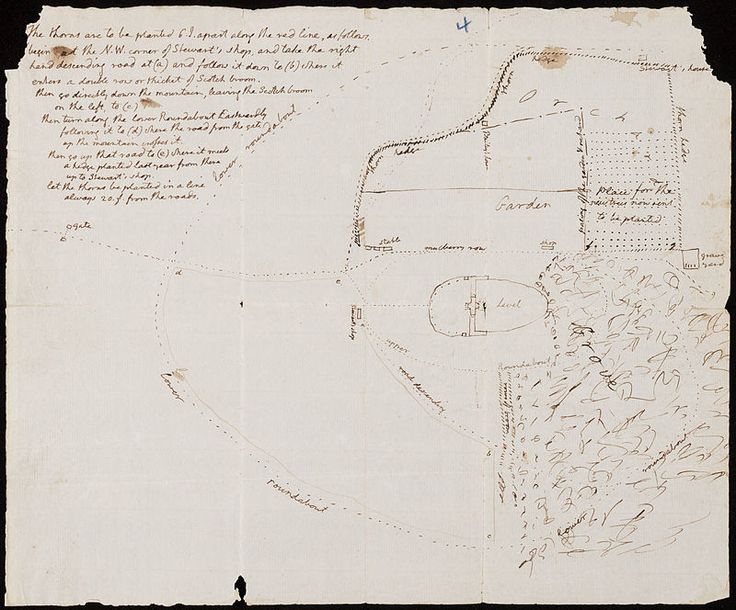 4
The thorns are to be planted 6.I. apart along the red line, as follows,
begin at the N.W. corner of Stewart's shop, and take the right
hand descending road at (a) and follow it down to (b) where it
enters a double row or thicket of Scotch broom.
then go directly down the mountain, leaving the Scotch broom
on the left to (c)
then turn along the lower Roundabout Eastwardly
following it to (d) where the road from the gate
up the mountain crosses it.
then go up that road to (e) where it meets
a hedge planted last year from there
up to Stewart's shop.
let the thorns be planted in a line
always 20.f. from the roads.
lower roundabout
gate
thorn hedge
Stewart's house
thorn hedge
thorn hedge
Orchard
Garden
paling of the garden
place for the
now sent
to be planted
stable
mulberry row
shop
grave
yard
Level
Grove
upper
Roundabout
road descending
d
lower
roundabout
lower
roundabout